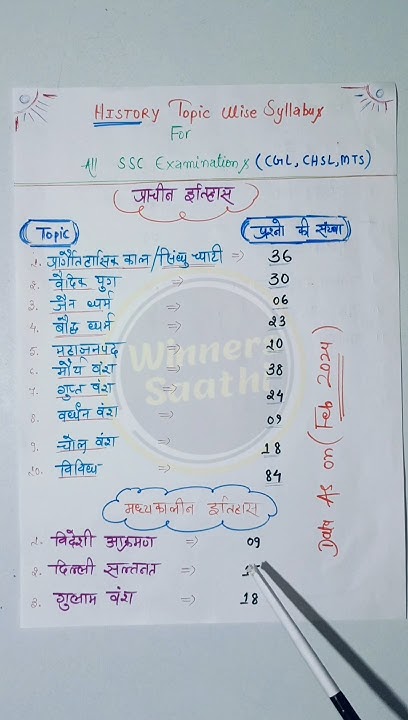 HISTORY Topic Wise Syllabus
For
All SSC Examinations (CGL, CHSL, MTS)
प्राचीन इतिहास
Topic प्रश्नो की संख्या
1. प्रागैतिहासिक काल/सिंधु घाटी => 36
2. वैदिक युग => 30
3. जैन धर्म => 06
4. बौद्ध धर्म => 23
5. महाजनपद => 20
6. मौर्य वंश => 38
7. गुप्त वंश => 24
8. वर्धन वंश => 09
9. चोल वंश => 18
10. विविध => 84
Winners
Saathi
Data As on (Feb 2024)
मध्यकालीन इतिहास
1. विदेशी आक्रमण => 09
2. दिल्ली सल्तनत =>
3. गुलाम वंश => 18